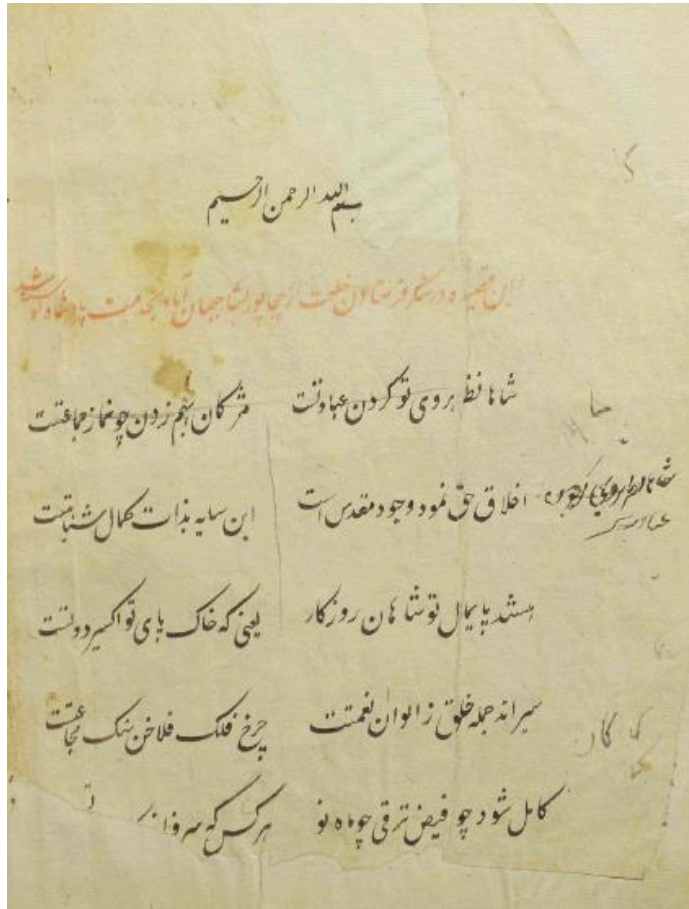 بسم الله الرحمن الرحیم
این قصیده در شکر فرستادن خلعت از بیجاپور بشاه جهان آباد بخدمت پادشاه نوشته شد
شاها نظر بروی تو کردن عبادتست مژکان بهم زدن چو نماز جماعتست
اخلاق حق نمود وجود مقدس است این سایه بذات کمال شباهتست
هستند پایمال تو شاهان روزکار یعنی که خاک پای تو اکسیر دولتست
سیراند جمله خلق ز الوان نعمتت چرخ فلک فلاخن سنک مجاعتست
کامل شود چو فیض ترقی چو ماه نو هر کس که سر